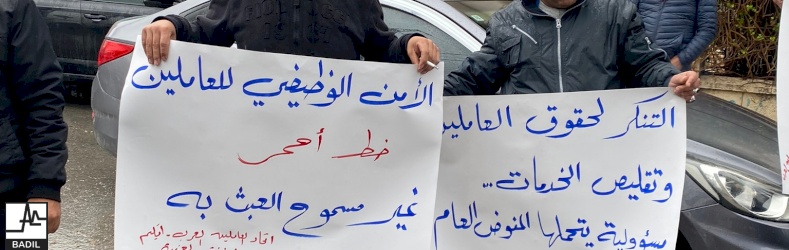 الأمن الوظيفي للعاملين
خط أحمر
غير مسموح العبث به
اتحاد العاملين العرب - إقليم
التنكر لحقوق العاملين
وتقليص الخدمات..
سؤولية يتحملها المفوض العام
BADIL